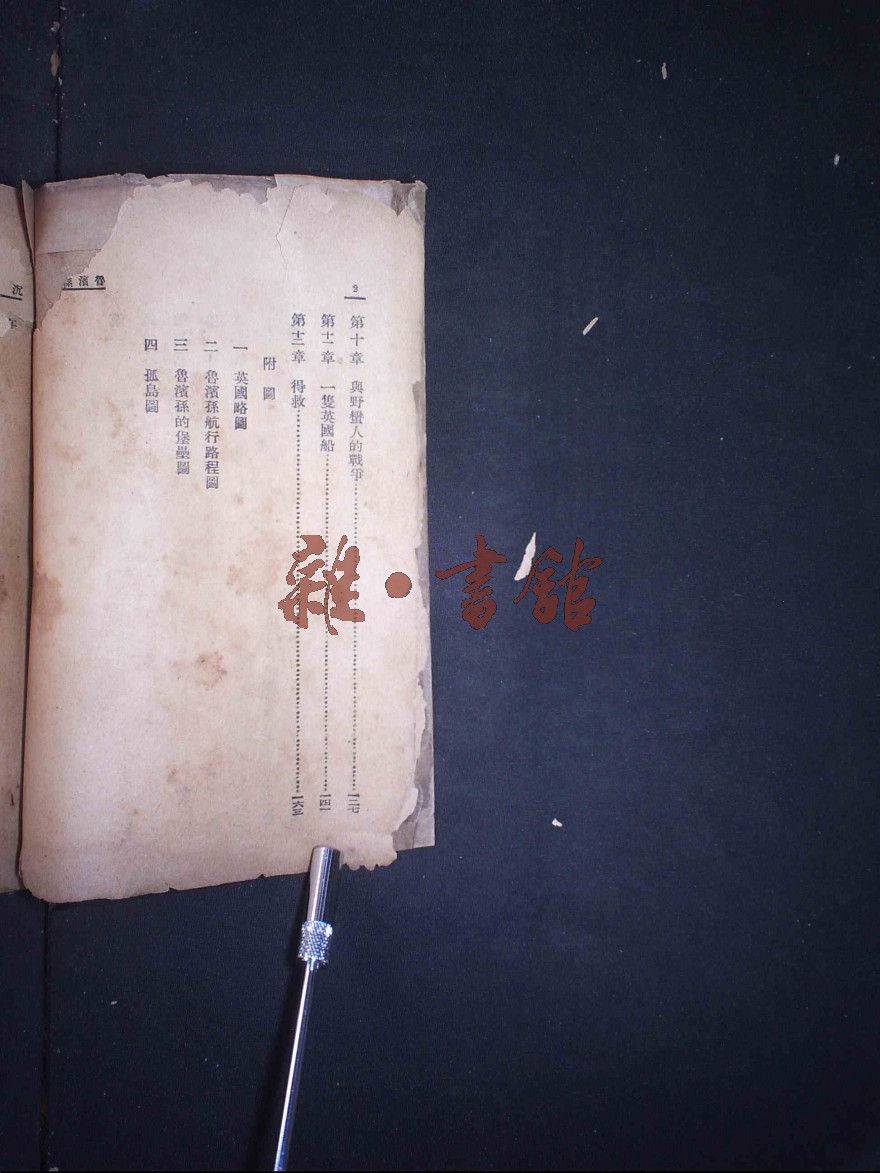 2
魯濱孫
第十章 與野蠻人的戰爭……一二七
第十一章 一隻英國船……一四一
第十二章 得救……一六三
附圖
一 英國略圖
二 魯濱孫航行路程圖
三 魯濱孫的堡壘圖
四 孤島圖
沉
雜·書館